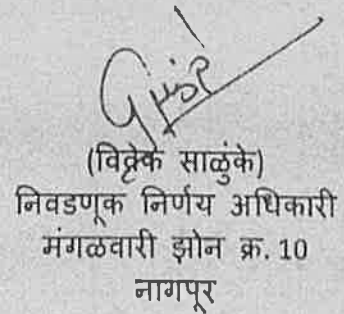 (विवेक साळुंके)
निवडणूक निर्णय अधिकारी
मंगळवारी झोन क्र. 10
नागपूर